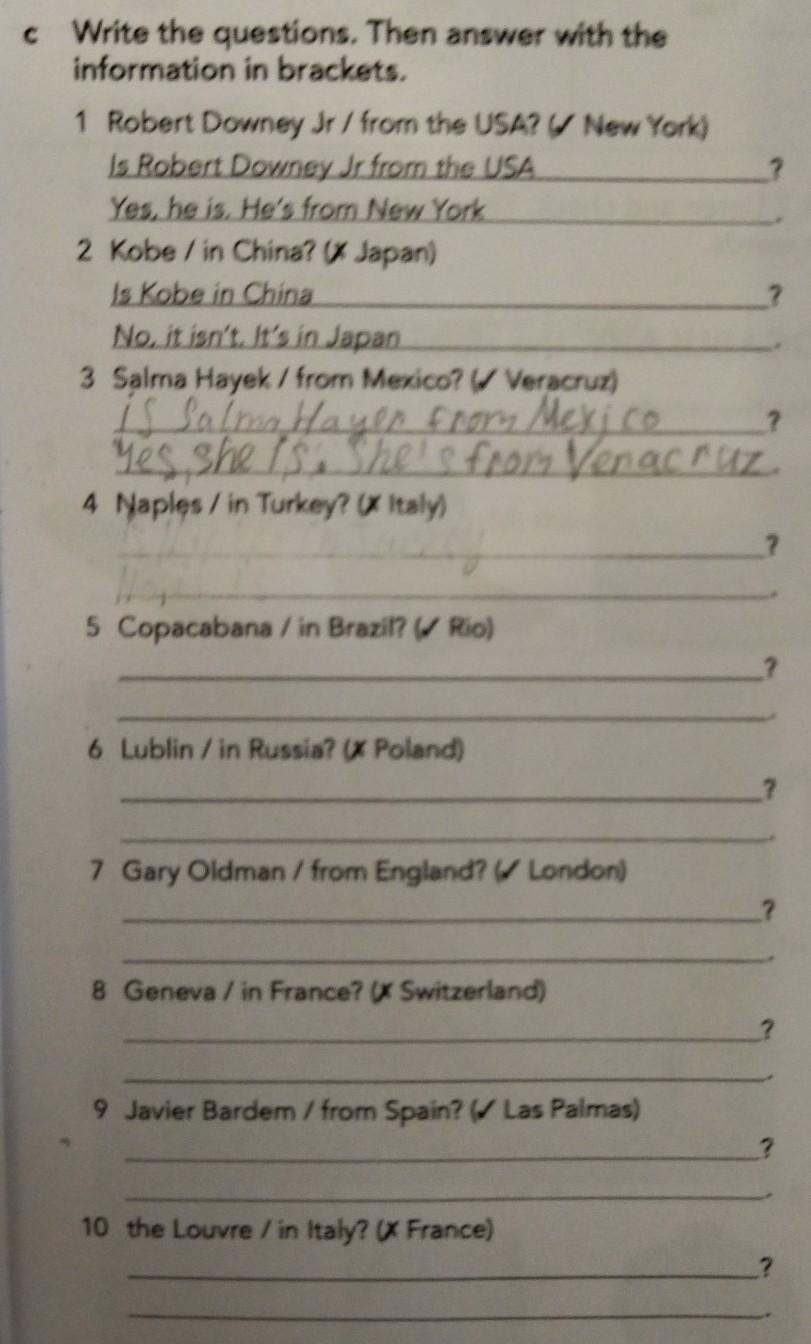 c Write the questions. Then answer with the
information in brackets.
1 Robert Downey Jr / from the USA? (✓ New York)
Is Robert Downey Jr from the USA ?
Yes, he is. He's from New York .
2 Kobe / in China? (✗ Japan)
Is Kobe in China ?
No, it isn't. It's in Japan .
3 Salma Hayek / from Mexico? (✓ Veracruz)
is Salma Hayer from Mexico ?
Yes, she is. She's from Venacruz .
4 Naples / in Turkey? (✗ Italy)
?
.
5 Copacabana / in Brazil? (✓ Rio)
?
.
6 Lublin / in Russia? (✗ Poland)
?
.
7 Gary Oldman / from England? (✓ London)
?
.
8 Geneva / in France? (✗ Switzerland)
?
.
9 Javier Bardem / from Spain? (✓ Las Palmas)
?
.
10 the Louvre / in Italy? (✗ France)
?
.